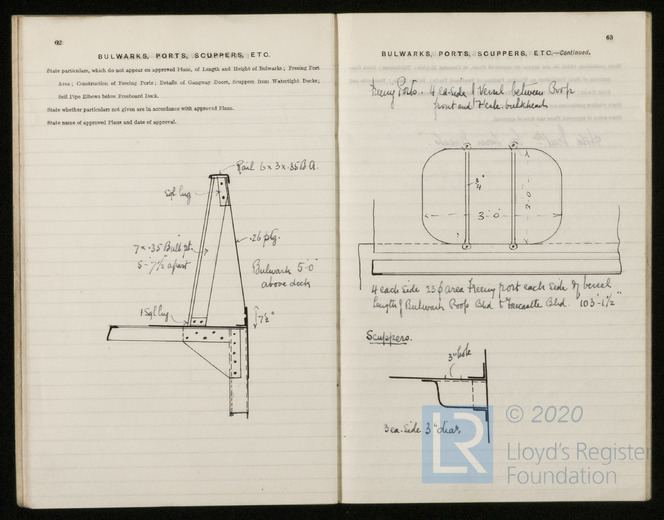 62
BULWARKS, PORTS, SCUPPERS, ETC.
State particulars, which do not appear on approved Plans, of Length and Height of Bulwarks; Freeing Port
Area; Construction of Freeing Ports; Details of Gangway Doors, Scuppers from Watertight Decks;
Soil Pipe Elbows below Freeboard Deck.
State whether particulars not given are in accordance with approved Plans.
State name of approved Plans and date of approval.
Rail 6 x 3 x .35 B.A.
Sgl lug
7 x .35 Bulb pt.
5'-7½ apart
.26 ptg.
Bulwark 5'0"
above deck
1 Sgl lug
7½"
63
BULWARKS, PORTS, SCUPPERS, ETC.—Continued.
Freeing Ports. 4 ea. side of Vessel between Poop
front and bulkheads
¾"
3'.0"
2'.0"
4 each side area freeing port each side of vessel
Length of Bulwark Poop Bhd to Forecastle Bhd. 103'-1½"
Scuppers.
3" hole
3 ea. side 3" diar.
LR
© 2020
Lloyd's Register
Foundation